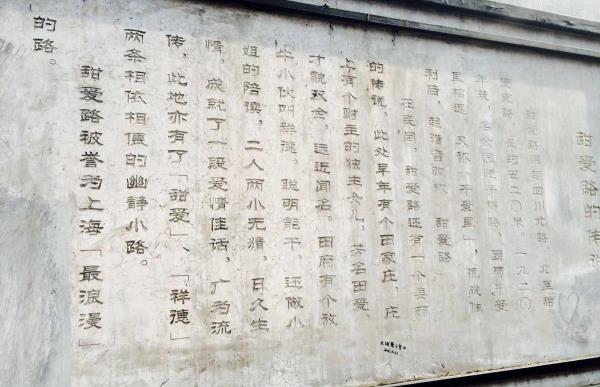 甜爱路的传说
甜爱路南起四川北路，北至甜
爱支路，长约五二〇米。一九二〇
年筑，名公园靶子场路，千爱
里相通，又称「千爱里」，抗战胜
利后，起谐音改称「甜爱路」
在民间，甜爱路还有一个美丽
的传说，此处早年有个田家庄，庄
上有个财主的独生女儿，芳名田爱，
才貌双全，远近闻名。田府有个放
牛小伙叫祥德，聪明能干，还做小
姐的陪读，二人两小无猜，日久生
情，成就了一段爱情佳话，广为流
传，此地亦有了「甜爱」、「祥德」
两条相依相偎的幽静小路。
甜爱路被誉为上海「最浪漫」
的路。